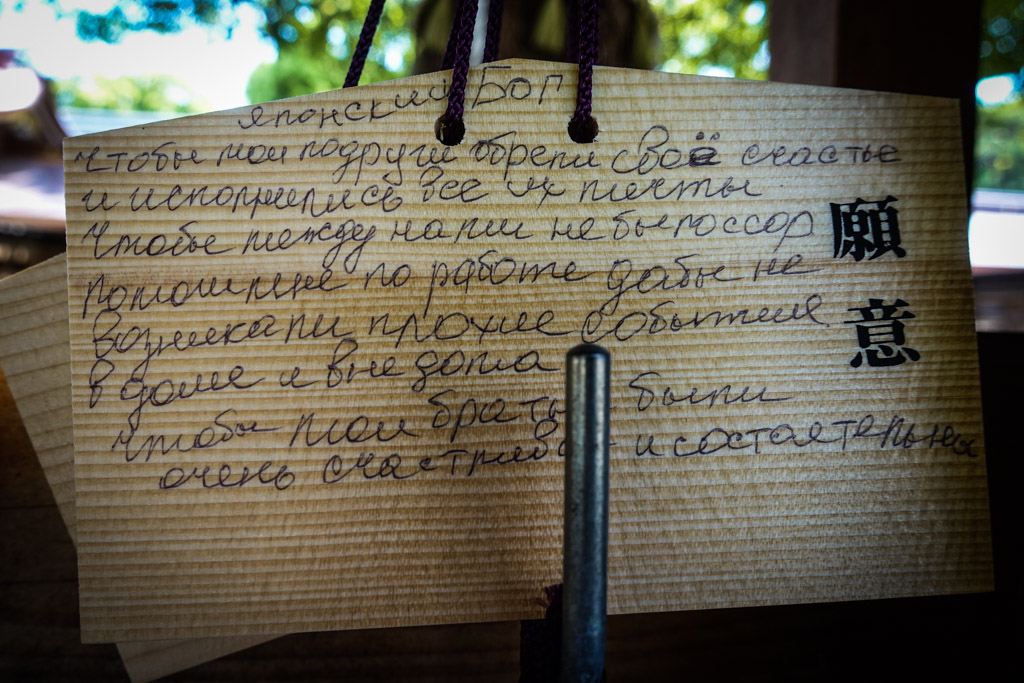 японский Бог
чтобы мои подруги обрели своё счастье
и исполнились все их мечты
Чтобы между нами не было ссор
по работе дабы не
возникали плохие события
в доме и вне дома
чтобы мои были
очень и состоятельны
願
意